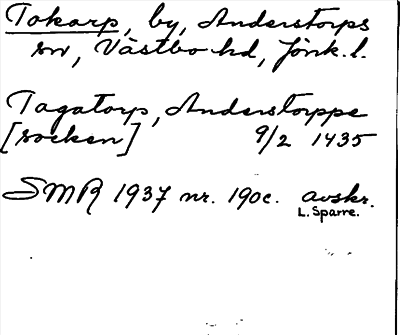 Tokarp, by, Anderstorps
sn, Västbo hd, Jönk. l.
Tagatorp, Anderstorppe
[socken] 9/2 1435
SMR 1937 nr. 190c. avskr.
L. Sparre.